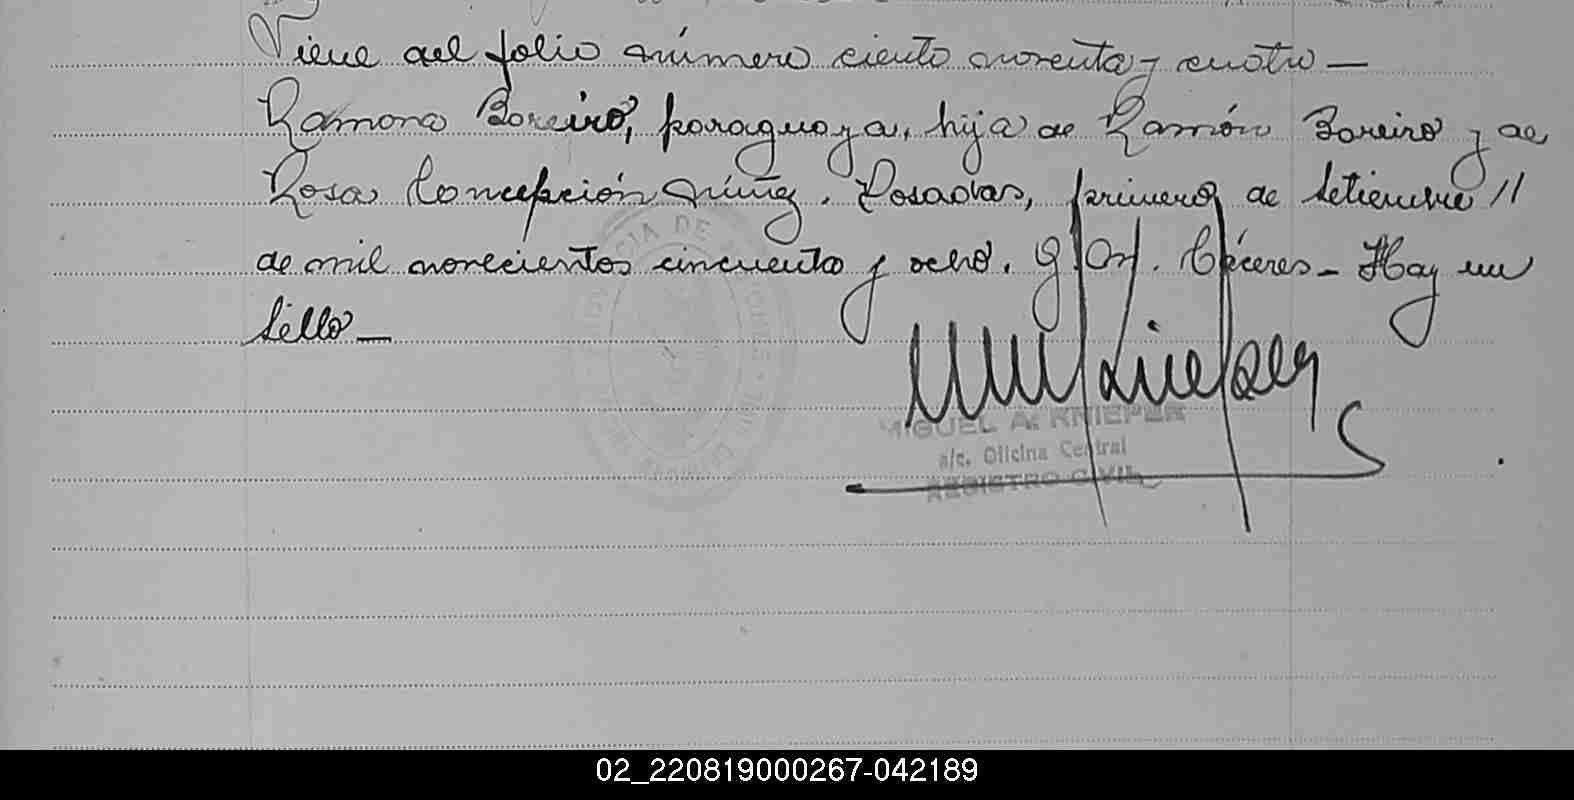 Viene del folio número ciento noventa y cuatro —
Ramona Boreiro, paraguaya, hija de Ramón Boreiro y de
Rosa Concepción Núñez. Posadas, primero de Setiembre //
de mil novecientos cincuenta y ocho. Cáceres - Hay un
sello —
MIGUEL A. KNIEPER
a/c. Oficina Central
REGISTRO CIVIL
02_220819000267-042189